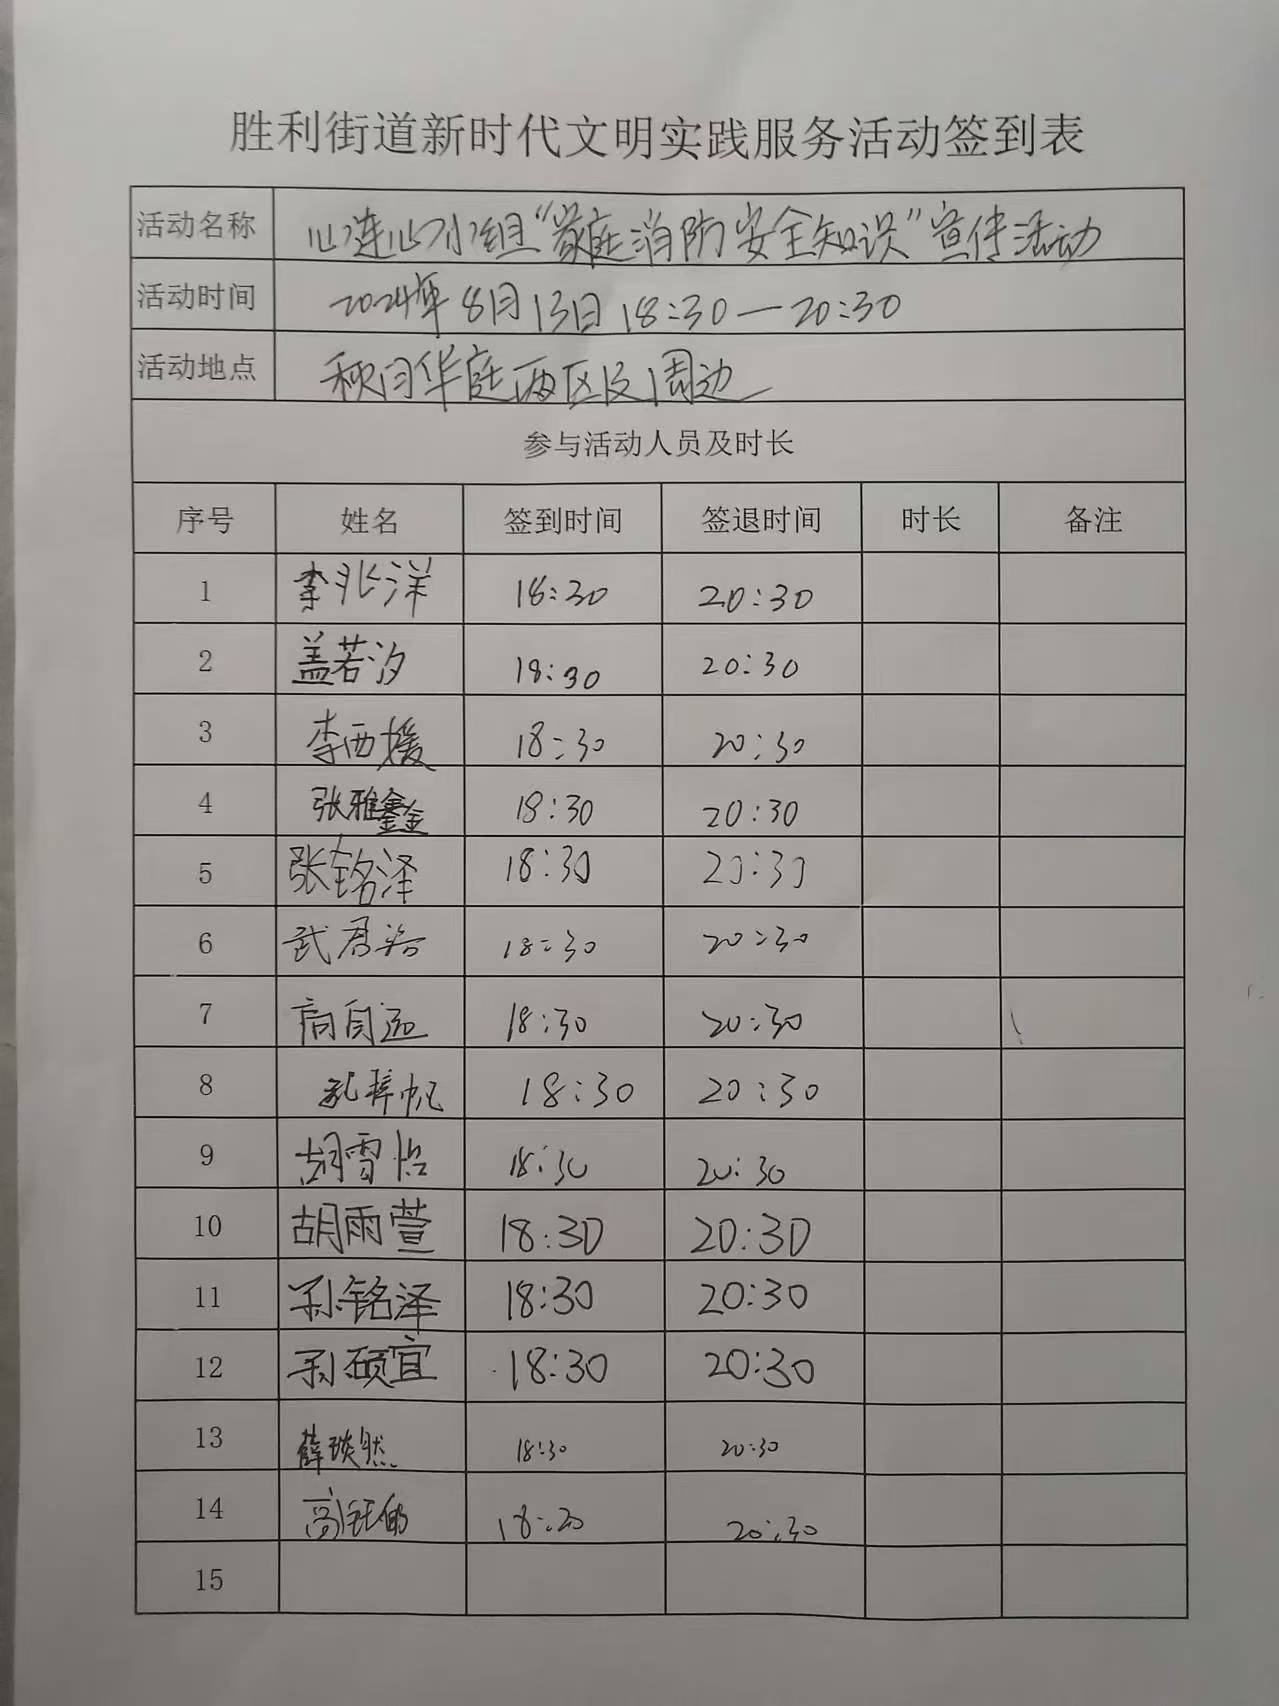 胜利街道新时代文明实践服务活动签到表
活动名称 心连心小组“家庭消防安全知识”宣传活动
活动时间 2024年8月13日18:30—20:30
活动地点 秋月华庭西区及周边
参与活动人员及时长
序号 姓名 签到时间 签退时间 时长 备注
1 李兆洋 18:30 20:30
2 盖若汐 18:30 20:30
3 李西媛 18:30 20:30
4 张雅鑫 18:30 20:30
5 张铭泽 18:30 20:30
6 武君 18:30 20:30
7 18:30 20:30
8 18:30 20:30
9 胡雪怡 18:30 20:30
10 胡雨萱 18:30 20:30
11 孙铭泽 18:30 20:30
12 孙硕宜 18:30 20:30
13 薛琰然 18:30 20:30
14 高钰 18:30 20:30
15